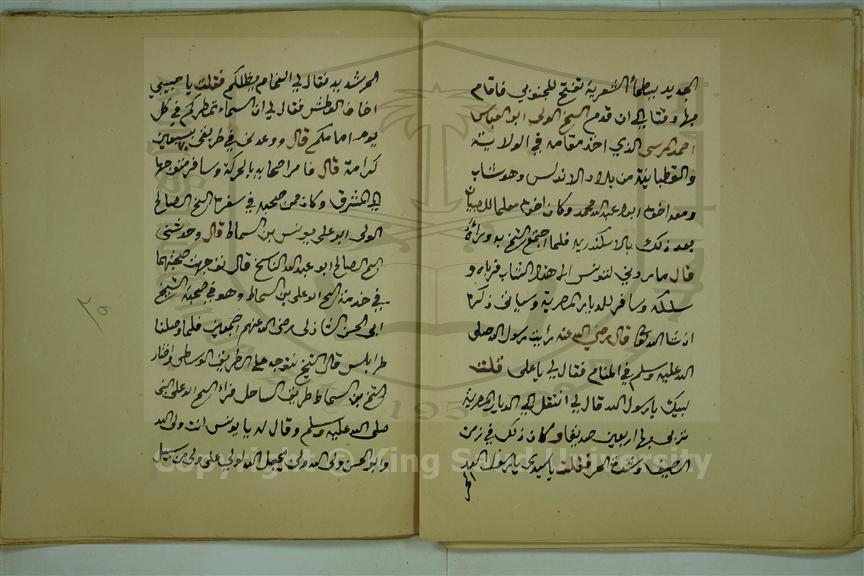 الجديد ببطحأ الشعرية تفتح للجنوبي فاقام
بها وقتا الى ان قدم الشيخ الولى ابو العباس
احمد المرسى الذي اخذ مقامه في الولاية
والقطبانية من بلاد الاندلس وهو شاب
ومعه اخوه ابو عبد الله محمد وكان اخوه معلما للصبيان
بعد ذلك بالاسكندرية فلما اجتمع الشيخ به ورأه
قال ما ردني لتونس الا هذا الشاب فرباه و
سلكه وسافر للديار المصرية وسياتى ذكرها
ان شا الله تعالى قال رضي الله عنه رايت رسول الله صلى
الله عليه وسلم في المنام فقال لي يا على قلت
لبيك يا رسول الله قال لي انتقل الى الديار المصرية
تربي بها اربعين صديقا وكان ذلك في زمن
الصيف وشدة الحر فقلت يا سيدى يا رسول الله
الحر
الحر شديد فقال لي الغمام يظللكم فقلت يا حبيبي
اخاف العطش فقال لي ان السماء تمطركم في كل
يوم امامكم قال ووعدني في طريقي بسبعين
كرامة قال فامر اصحابه بالحركة وسافر متوجها
الى المشرق وكان ممن صحبه في سفره الشيخ الصالح
الولى ابو على يونس بن السماط قال وحدثنى
الشيخ الصالح ابو عبد الله الناسخ قال توجهت صحبتهما
في خدمة الشيخ ابو على بن السماط وهو في صحبة الشيخ
ابى الحسن الشاذلى رضى الله عنهم جمعين فلما وصلنا
طرابلس قال الشيخ نتوجه على الطريق الوسطى واختار
الشيخ بن السماط طريق الساحل فراء الشيخ ابو على النبى
صلى الله عليه وسلم وقال له يا يونس انت ولى الله
وابو الحسن ولى الله ولن يجعل الله لولي على ولى من سبيل
٢٥
Copyright © King Saud University
1957